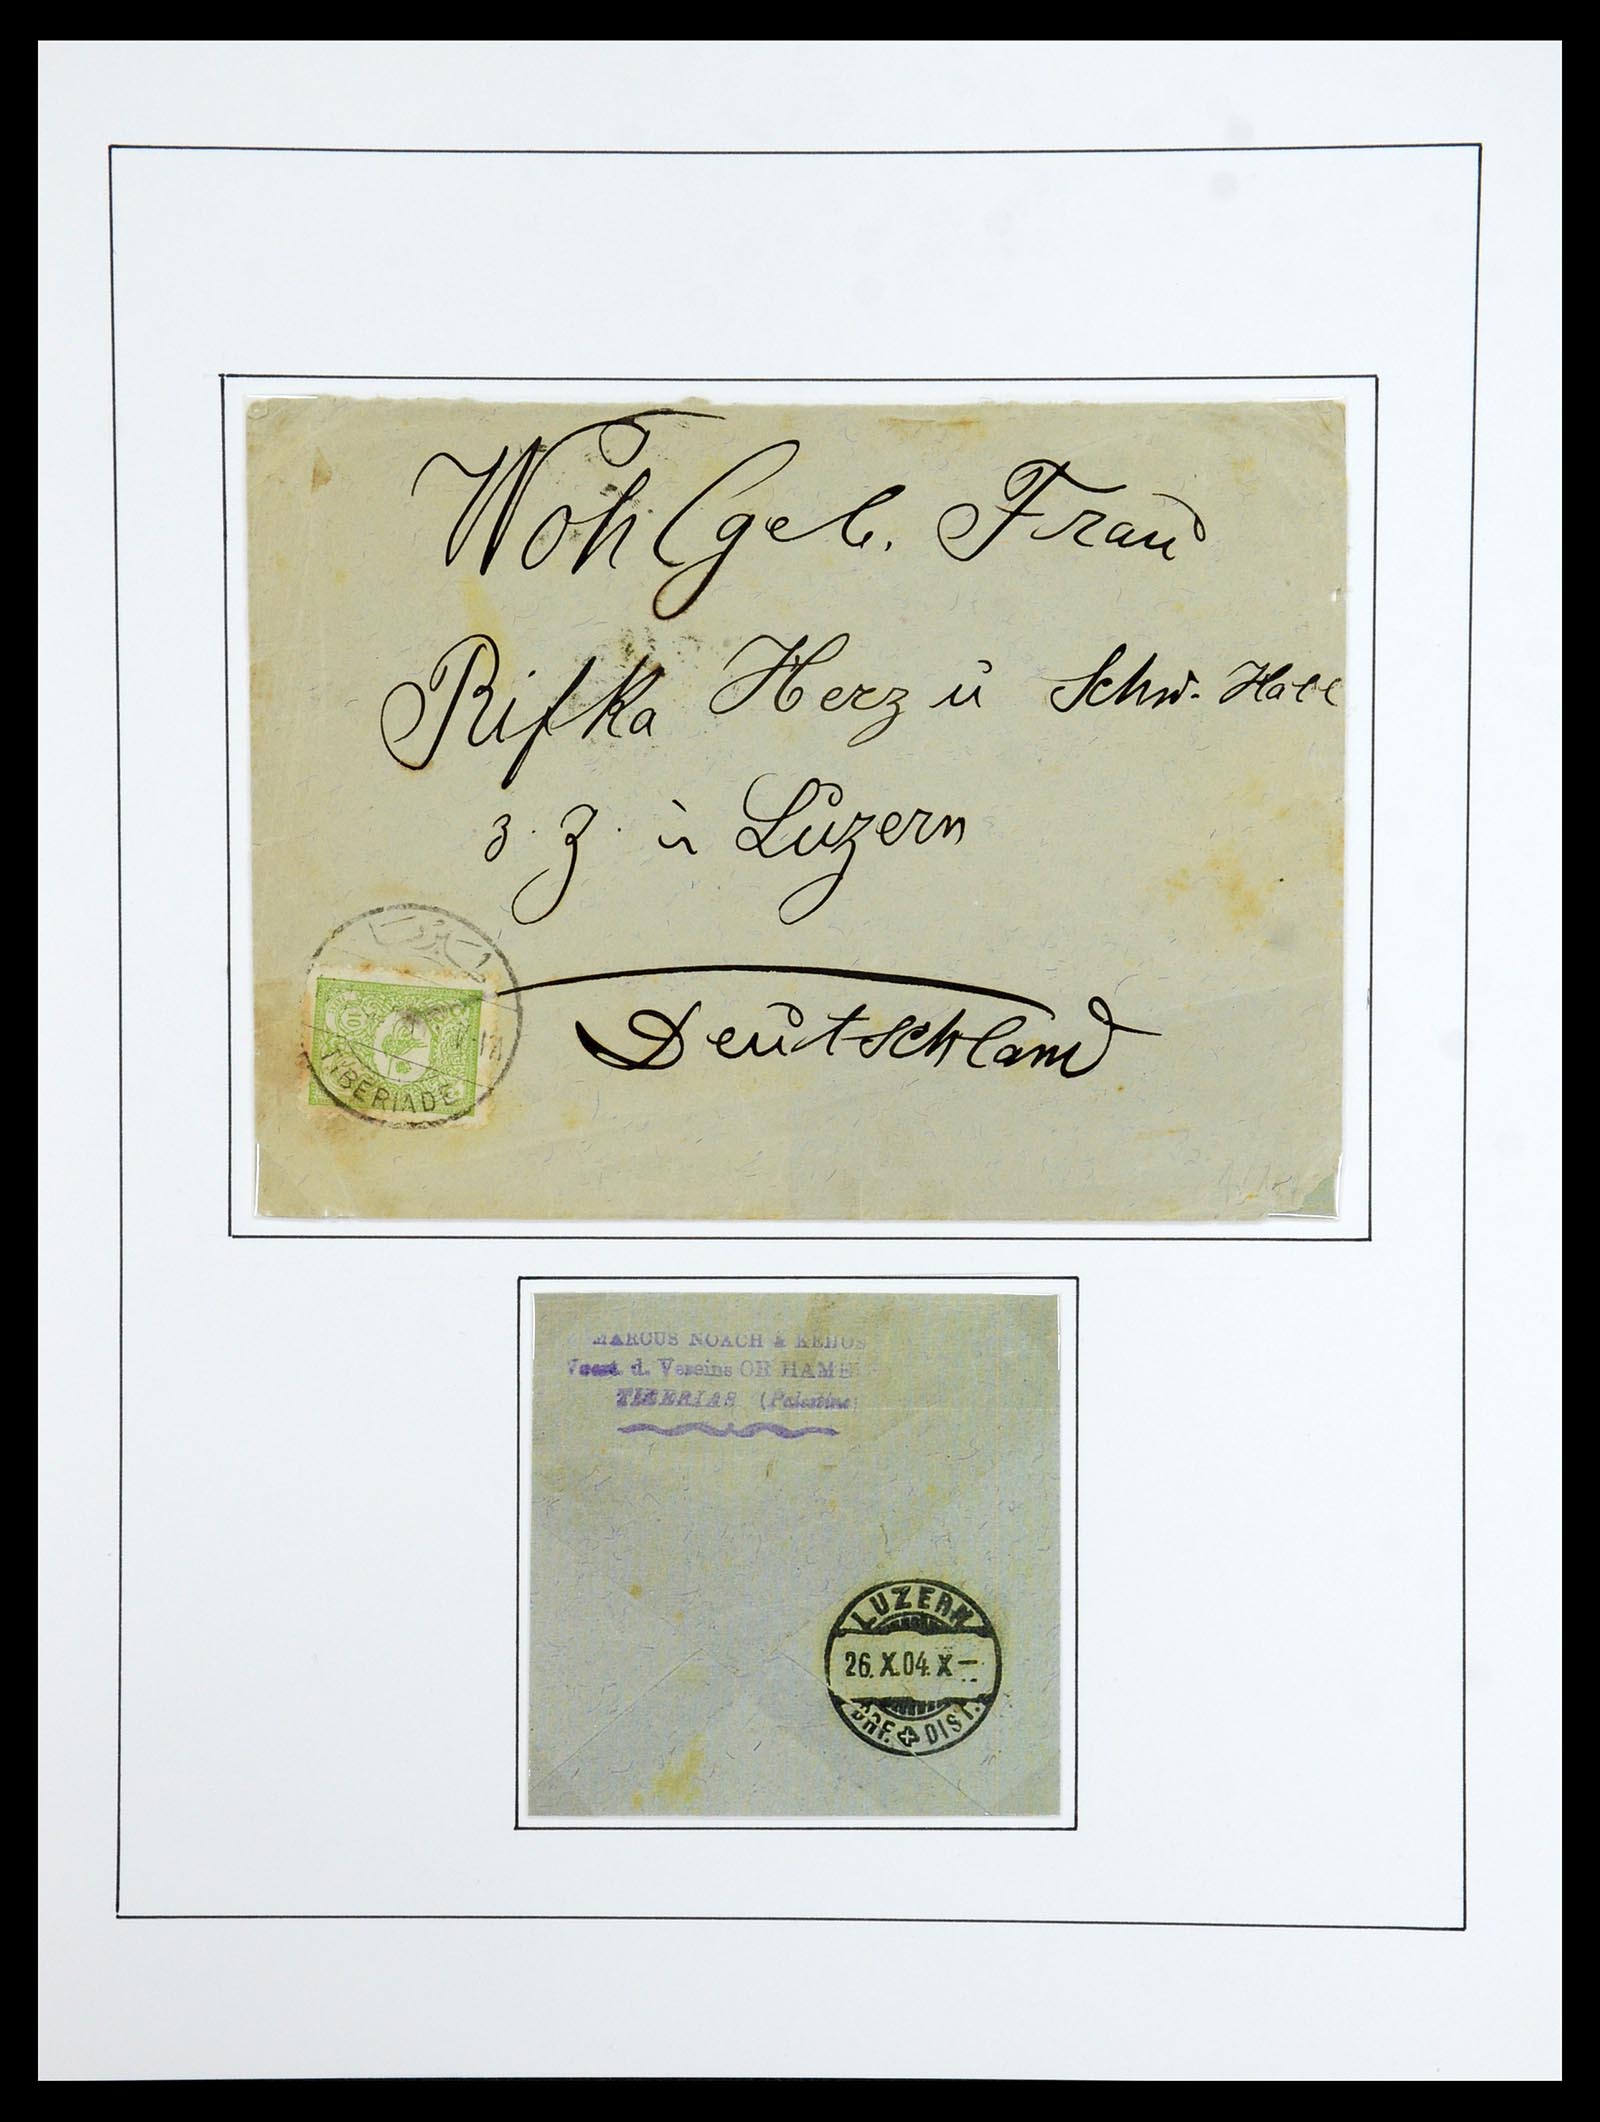 Wohlgeb. Frau
Rifka Herz ü Schw. Hall
z. Z. in Luzern
Deutschland
10
TIBERIADE
MARCUS NOACH &
d. Vereins OR HAMEIR
TIBERIAS (Palestine)
LUZERN
26.X.04.X–
BRF. DIST.